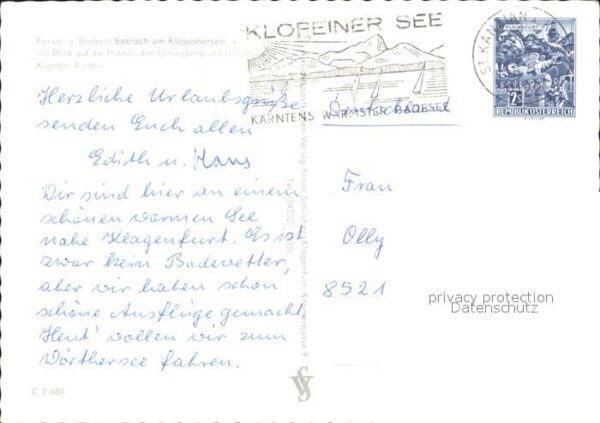 Ferien- u. Badeort Seelach am Klopeinersee
mit Blick auf die Petzen, den Georgiberg und
Kärnten, Austria
KLOPEINER SEE
KÄRNTENS WÄRMSTER BADESEE
ST. KANZIAN
2S
REPUBLIK ÖSTERREICH
Herzliche Urlaubsgrüße
senden Euch allen
Edith u. Hans
Wir sind hier an einem
schönen warmen See
nahe Klagenfurt. Es ist
zwar kein Badewetter,
aber wir haben schon
schöne Ausflüge gemacht
Heut' wollen wir zum
Wörthersee fahren.
C 2-688
Verlag Franz Schilcher, Klagenfurt,
Deutschland
Frau
Olly
8521
privacy protection
Datenschutz